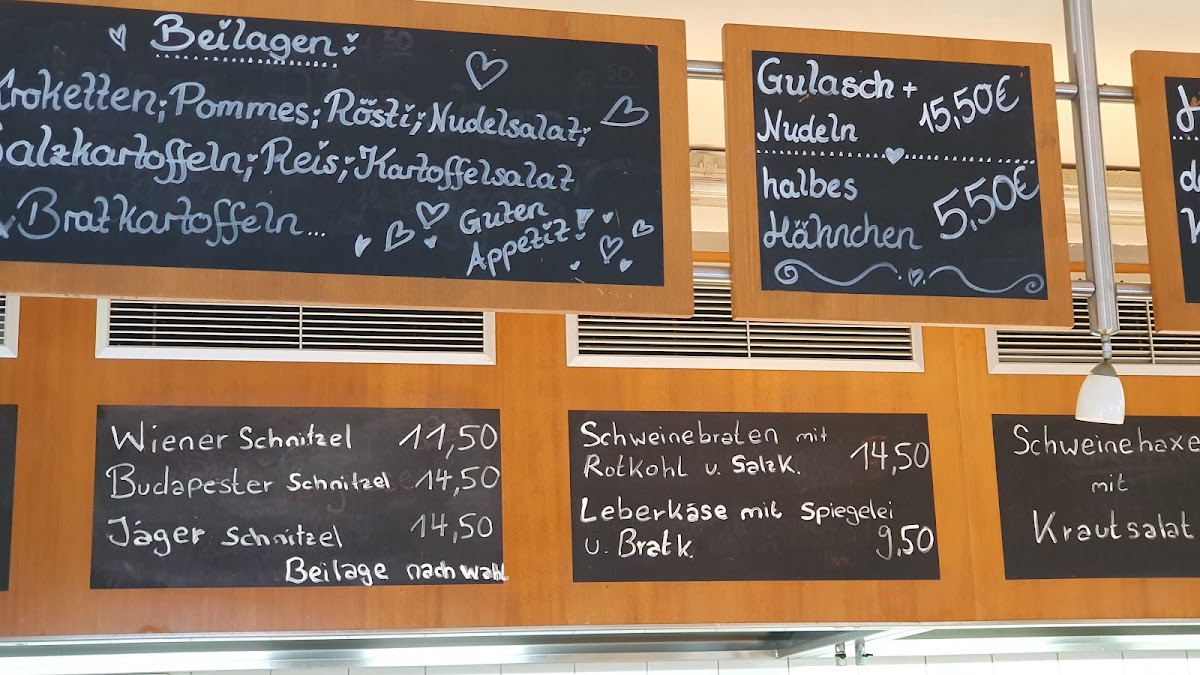 Beilagen:
Kroketten; Pommes; Rösti; Nudelsalat;
Salzkartoffeln; Reis; Kartoffelsalat
Bratkartoffeln...
Guten
Appetit!
Gulasch +
Nudeln 15,50€
halbes
Hähnchen 5,50€
Wiener Schnitzel 11,50
Budapester Schnitzel 14,50
Jäger Schnitzel 14,50
Beilage nach wahl
Schweinebraten mit
Rotkohl u. Salzk. 14,50
Leberkäse mit Spiegelei
u. Bratk. 9,50
Schweinehaxe
mit
Krautsalat